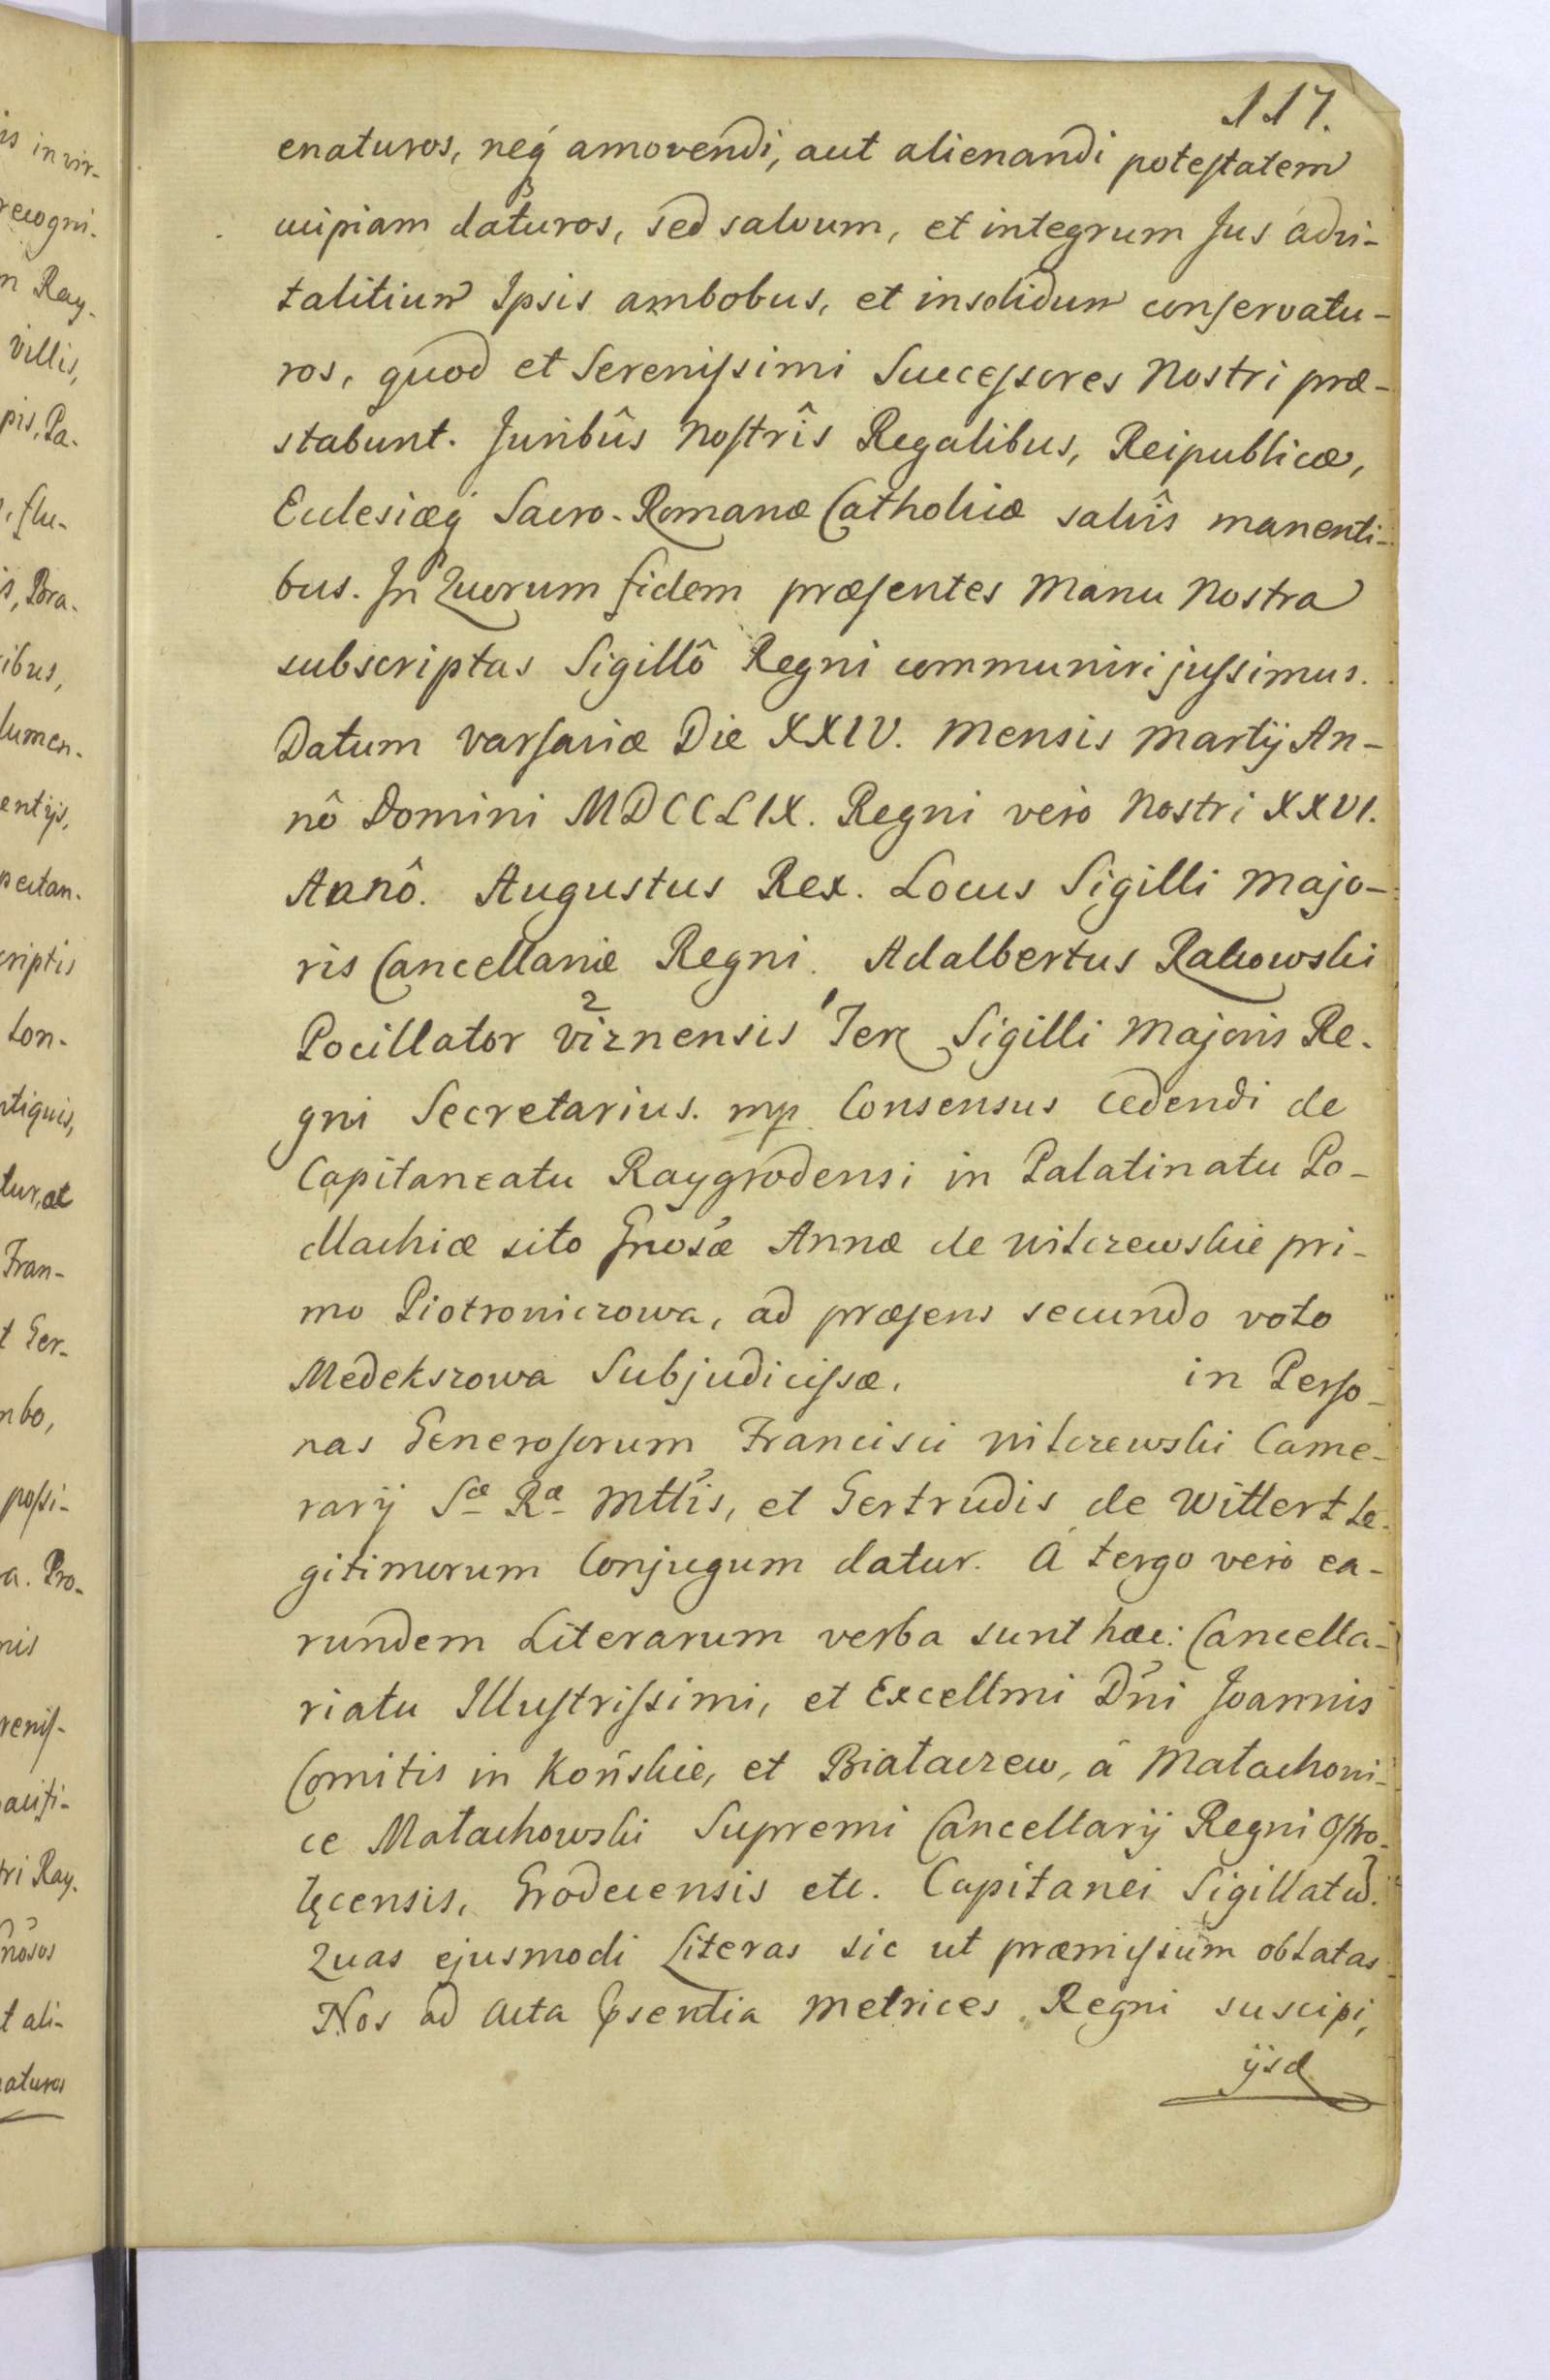 117.
enaturos, neq́ amovendi, aut alienandi potestatem
cuipiam daturos, sed salvum, et integrum Jus advi-
talitium Ipsis ambobus, et insolidum conservatu-
ros, quod et Serenissimi Successores Nostri præ-
stabunt. Juribûs Nostrîs Regalibus, Reipublicæ,
Ecclesiæq́ Sacro-Romanæ Catholicæ salvîs manenti-
bus. In Quorum fidem præsentes Manu Nostra
subscriptas Sigillô Regni communiri jussimus.
Datum Varsaviæ Die XXIV. Mensis Martij An-
nô Domini MDCCLIX. Regni verò Nostri XXVI.
Annô. Augustus Rex. Locus Sigilli Majo-
ris Cancellariæ Regni. Adalbertus Rakowski
Pocillator Viznensis Ter Sigilli Majoris Re-
gni Secretarius. mp. Consensus cedendi de
Capitaneatu Raygrodensi in Palatinatu Po-
dlachiæ sito Gnosæ Annæ de Wilczewskie pri-
mo Piotroviczowa, ad præsens secundo voto
Medekszowa Subjudicissæ. in Perso-
nas Generosorum Francisci Wilczewski Came-
rarij Sæ Ræ Mttis, et Gertrudis de Wittert Le-
gitimorum Conjugum datur. A tergo verò ea-
rundem Literarum verba sunt hæc: Cancella-
riatu Illustrissimi, et Excellmi Dni Joannis
Comitis in Końskie, et Białaczew, â Małachowi-
ce Małachowski Supremi Cancellarij Regni Ostro-
łęcensis, Grodecensis etc. Capitanei Sigillatu.
Quas ejusmodi Literas sic ut præmissum oblatas
Nos ad Acta psentia Metrices Regni suscipi,
ijsd